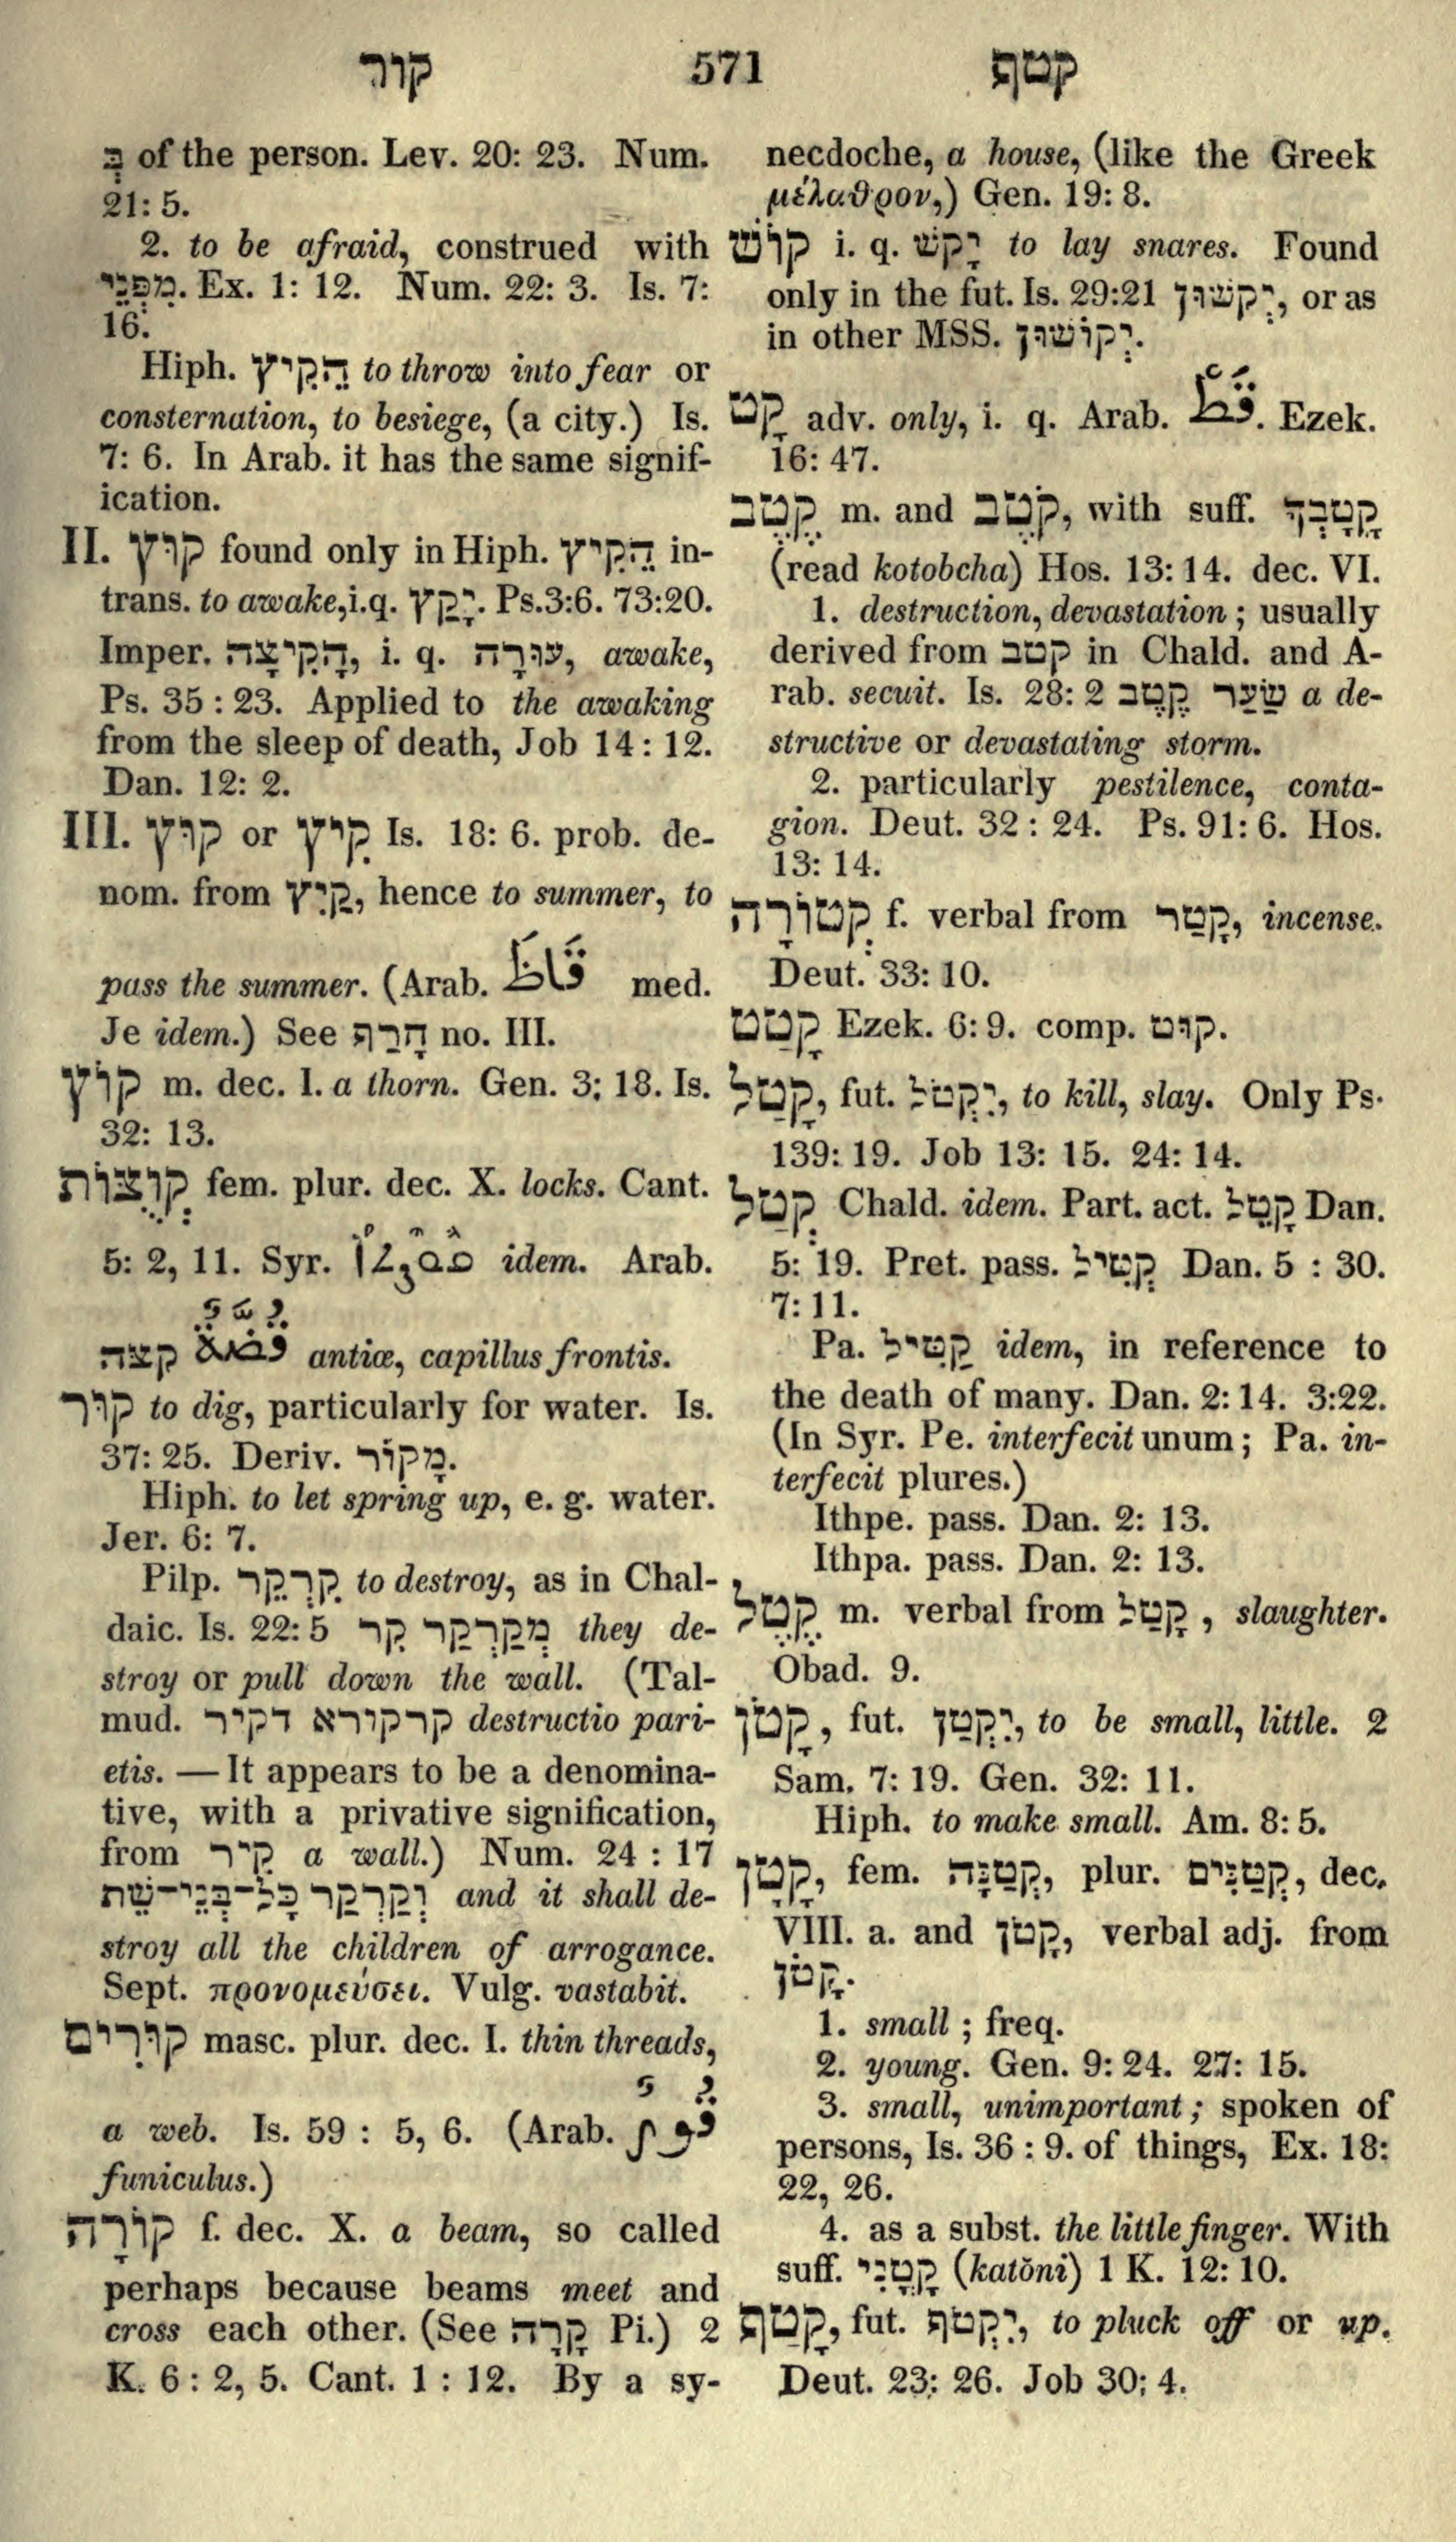 קור 571 קטף
בְּ of the person. Lev. 20: 23. Num.
21: 5.
2. to be afraid, construed with
מִפְּנֵי. Ex. 1: 12. Num. 22: 3. Is. 7:
16.
Hiph. הֵקִיץ to throw into fear or
consternation, to besiege, (a city.) Is.
7: 6. In Arab. it has the same signif-
ication.
II. קוּץ found only in Hiph. הֵקִיץ in-
trans. to awake, i.q. יָקַץ. Ps.3:6. 73:20.
Imper. הָקִיצָה, i. q. עוּרָה, awake,
Ps. 35 : 23. Applied to the awaking
from the sleep of death, Job 14: 12.
Dan. 12: 2.
III. קוּץ or קִיץ Is. 18: 6. prob. de-
nom. from קַיִץ, hence to summer, to
pass the summer. (Arab. قَاظَ med.
Je idem.) See חָרַף no. III.
קוֹץ m. dec. I. a thorn. Gen. 3: 18. Is.
32: 13.
קְוֻצּוֹת fem. plur. dec. X. locks. Cant.
5: 2, 11. Syr. idem. Arab.
קצה antiæ, capillus frontis.
קוּר to dig, particularly for water. Is.
37: 25. Deriv. מָקוֹר.
Hiph. to let spring up, e. g. water.
Jer. 6: 7.
Pilp. קִרְקֵר to destroy, as in Chal-
daic. Is. 22: 5 מְקַרְקַר קִר they de-
stroy or pull down the wall. (Tal-
mud. קרקורא דקיר destructio pari-
etis. — It appears to be a denomina-
tive, with a privative signification,
from קִיר a wall.) Num. 24 : 17
וְקַרְקַר כָּל־בְּנֵי־שֵׁת and it shall de-
stroy all the children of arrogance.
Sept. προνομεύσει. Vulg. vastabit.
קוּרִים masc. plur. dec. I. thin threads,
a web. Is. 59 : 5, 6. (Arab.
funiculus.)
קוֹרָה f. dec. X. a beam, so called
perhaps because beams meet and
cross each other. (See קָרָה Pi.) 2
K. 6 : 2, 5. Cant. 1 : 12. By a sy-
necdoche, a house, (like the Greek
μέλαθρον,) Gen. 19: 8.
קוֹשׁ i. q. יָקַשׁ to lay snares. Found
only in the fut. Is. 29:21 יְקֹשׁוּן, or as
in other MSS. יְקוֹשׁוּן.
קָט adv. only, i. q. Arab. قَطّ. Ezek.
16: 47.
קֶטֶב m. and קֹטֶב, with suff. קָטָבְךָ
(read kotobcha) Hos. 13: 14. dec. VI.
1. destruction, devastation ; usually
derived from קטב in Chald. and A-
rab. secuit. Is. 28: 2 שַׂעַר קֶטֶב a de-
structive or devastating storm.
2. particularly pestilence, conta-
gion. Deut. 32 : 24. Ps. 91: 6. Hos.
13: 14.
קְטוֹרָה f. verbal from קָטַר, incense.
Deut. 33: 10.
קָטַט Ezek. 6: 9. comp. קוּט.
קָטַל, fut. יִקְטֹל, to kill, slay. Only Ps.
139: 19. Job 13: 15. 24: 14.
קְטַל Chald. idem. Part. act. קָטֵל Dan.
5: 19. Pret. pass. קְטִיל Dan. 5 : 30.
7: 11.
Pa. קַטִּיל idem, in reference to
the death of many. Dan. 2: 14. 3:22.
(In Syr. Pe. interfecit unum ; Pa. in-
terfecit plures.)
Ithpe. pass. Dan. 2: 13.
Ithpa. pass. Dan. 2: 13.
קֶטֶל m. verbal from קָטַל , slaughter.
Obad. 9.
קָטֹן , fut. יִקְטַן, to be small, little. 2
Sam. 7: 19. Gen. 32: 11.
Hiph. to make small. Am. 8: 5.
קָטָן, fem. קְטַנָּה, plur. קְטַנִּים, dec.
VIII. a. and קָטֹן, verbal adj. from
קָטֹן.
1. small ; freq.
2. young. Gen. 9: 24. 27: 15.
3. small, unimportant ; spoken of
persons, Is. 36 : 9. of things, Ex. 18:
22, 26.
4. as a subst. the little finger. With
suff. קָטָנִּי (katŏni) 1 K. 12: 10.
קָטַף, fut. יִקְטֹף, to pluck off or up.
Deut. 23: 26. Job 30: 4.